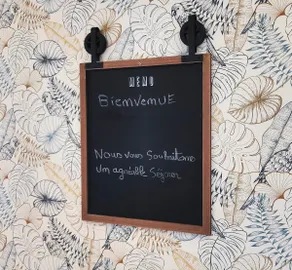 MEMO
BiEnvENUE
Nous vous Souhaitons
Un agréable Séjour